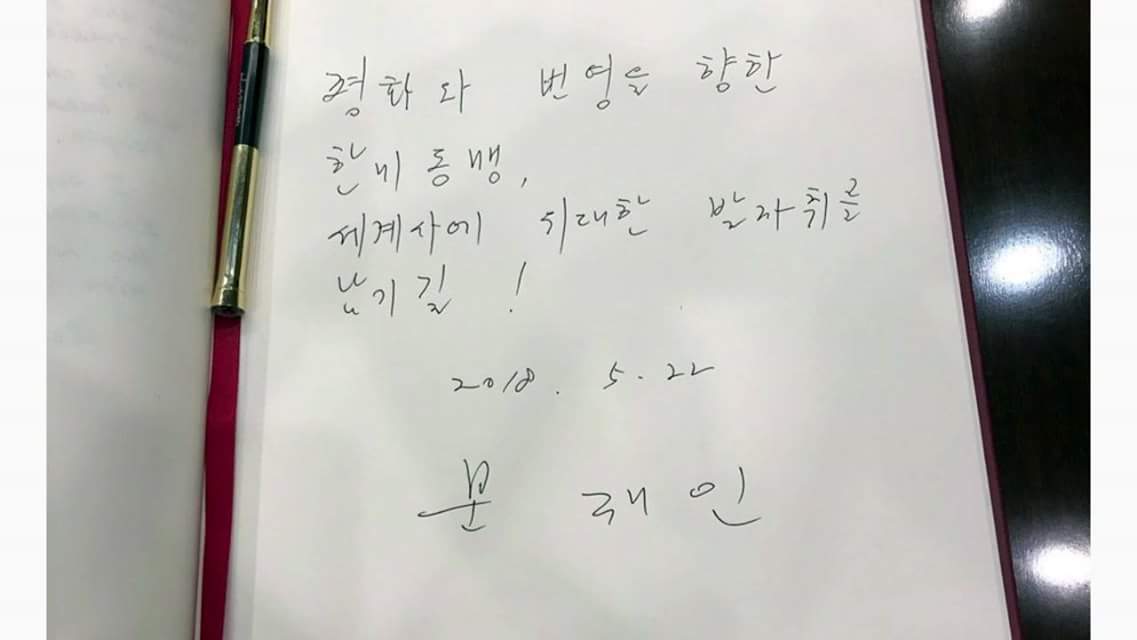 평화와 번영을 향한
한미동맹,
세계사에 위대한 발자취를
남기길 !
2018. 5. 22
문 재 인